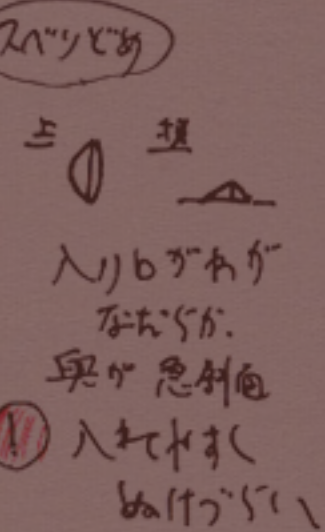 スベリどめ
上 横
入り口がわが
なだらか.
奥が 急斜面
! 入れてやすく
ぬけづらい